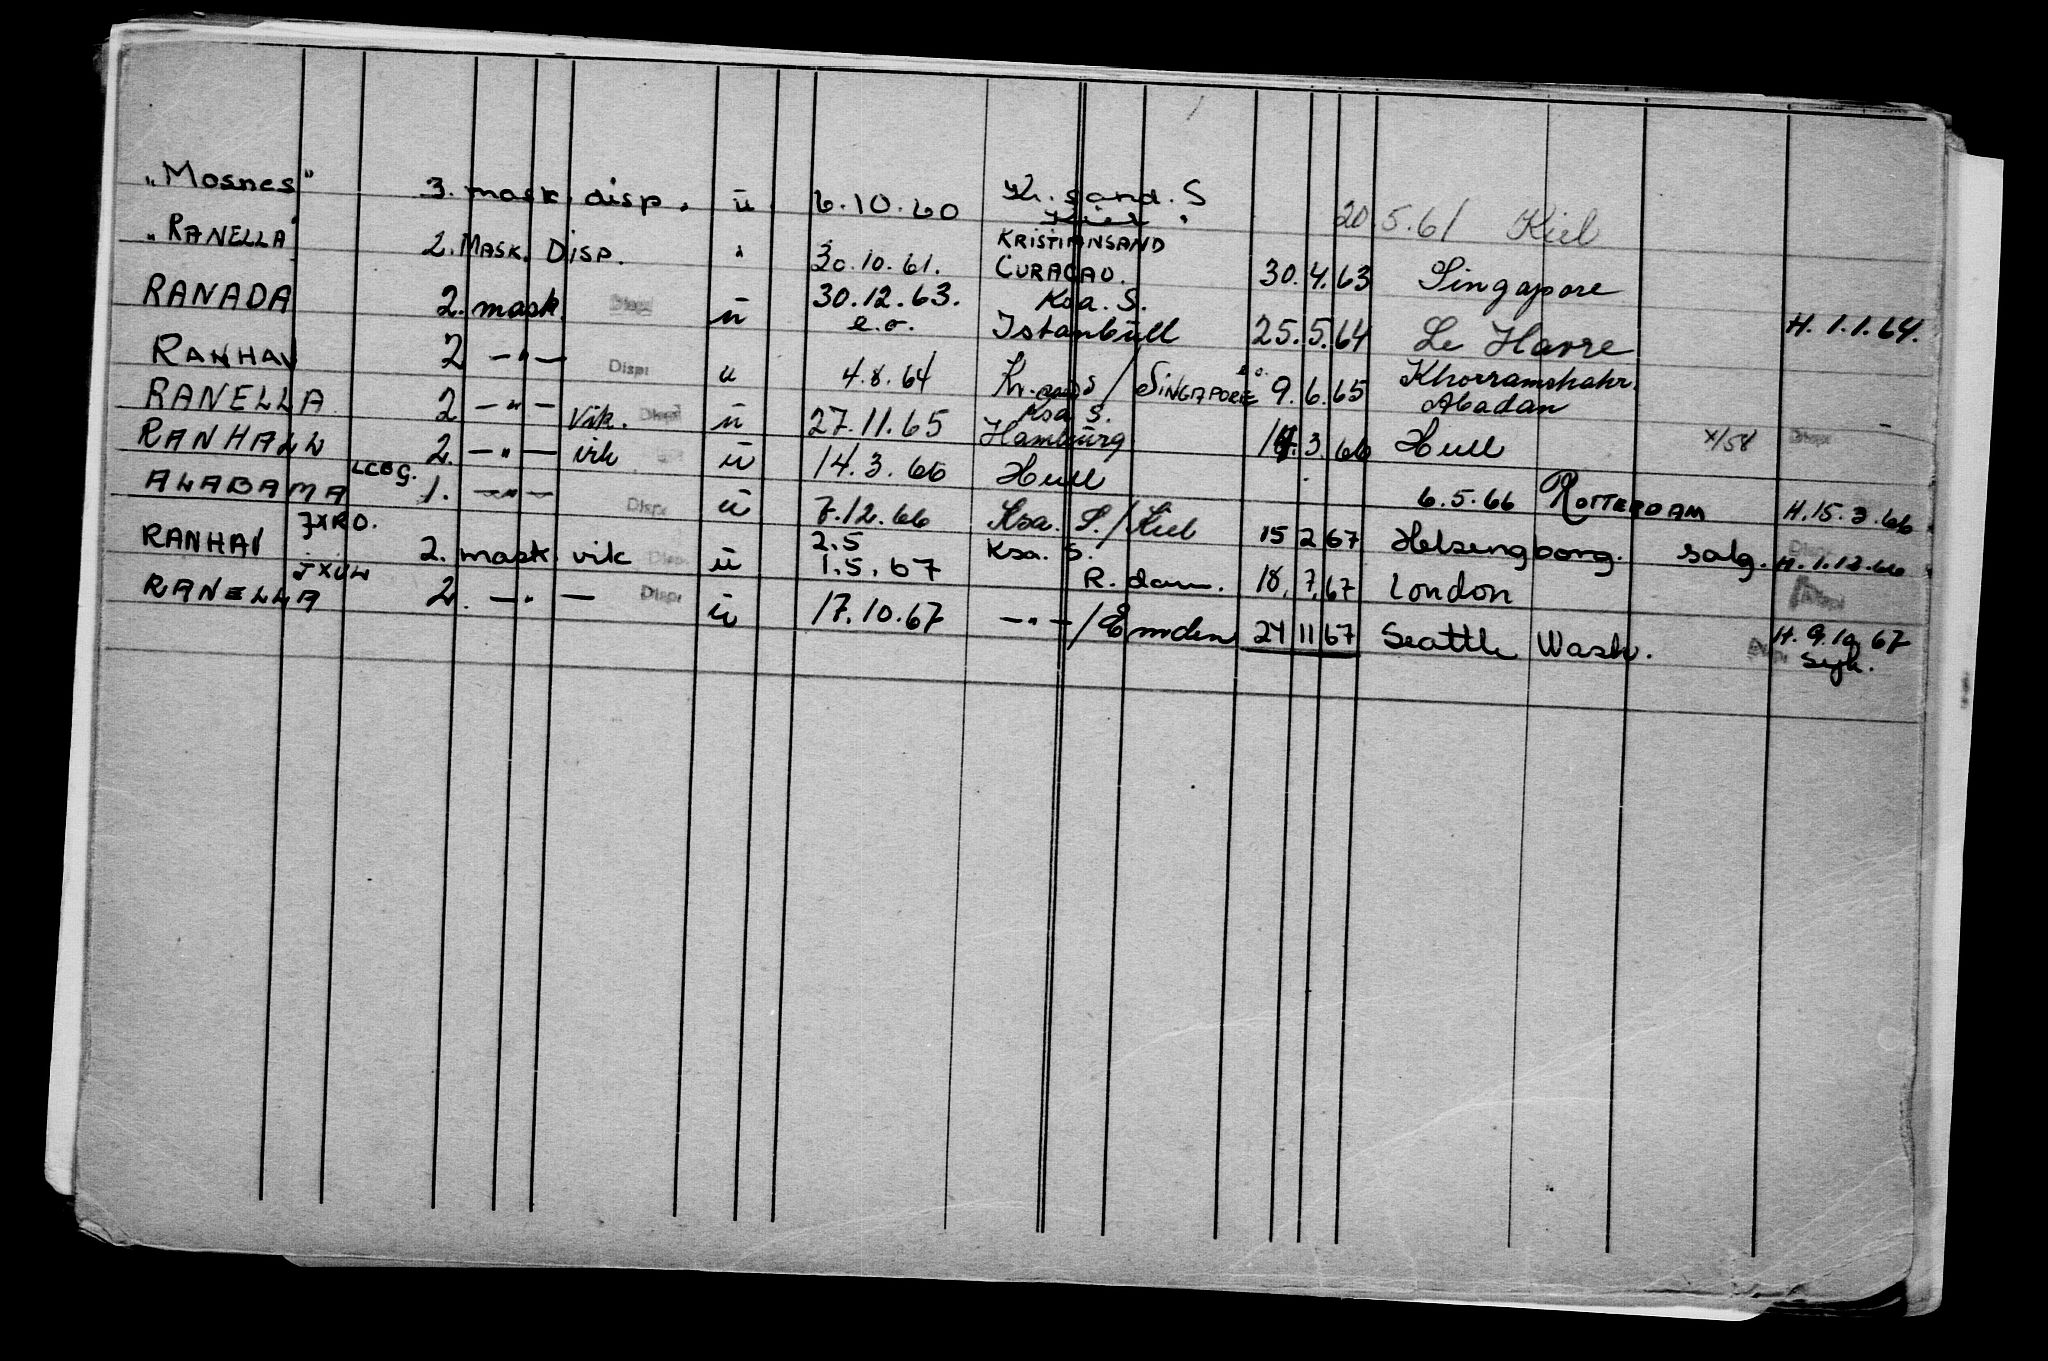 „Mosnes" 3. mask. disp. ü 6.10.60 Kr. sand. S 20.5.61 Kiel
Kiel
„RANELLA" 2. MASK. DISP. " 30.10.61. KRISTIANSAND CURACAO. 30.4.63 Singapore
RANADA 2. mask. Disp ü 30.12.63. Ksa. S. H. 1.1.64.
e.o. Istanbull 25.5.64 Le Havre
RANHAV 2 —"— Disp u 4.8.64 Kr. sand S / SINGAPORE e.o. 9.6.65 Khorramshahr. Abadan
RANELLA 2 —"— Vik. Disp ü 27.11.65 Ksa. S. Hamburg 14.3.66 Hull X/58 Disp
RANHALL 2. —"— vik ü 14.3.66 Hull 6.5.66 ROTTERDAM H. 15.3.66
ALABAMA LCBG. 1. —"— Disp ü 7.12.66 Ksa. S. / Kiel 15 2 67 Helsingborg. salg. H. 1.12.66
RANHAV JXRO. 2. mask. vik Disp ü 2.5 1.5.67 Ksa. S. R. dam. 18.7.67 London Disp
RANELLA JXUW 2. —"— Disp ü 17.10.67 —"— / Emden 24 11 67 Seattle Wash. Disp H. 9.10 67
syk.